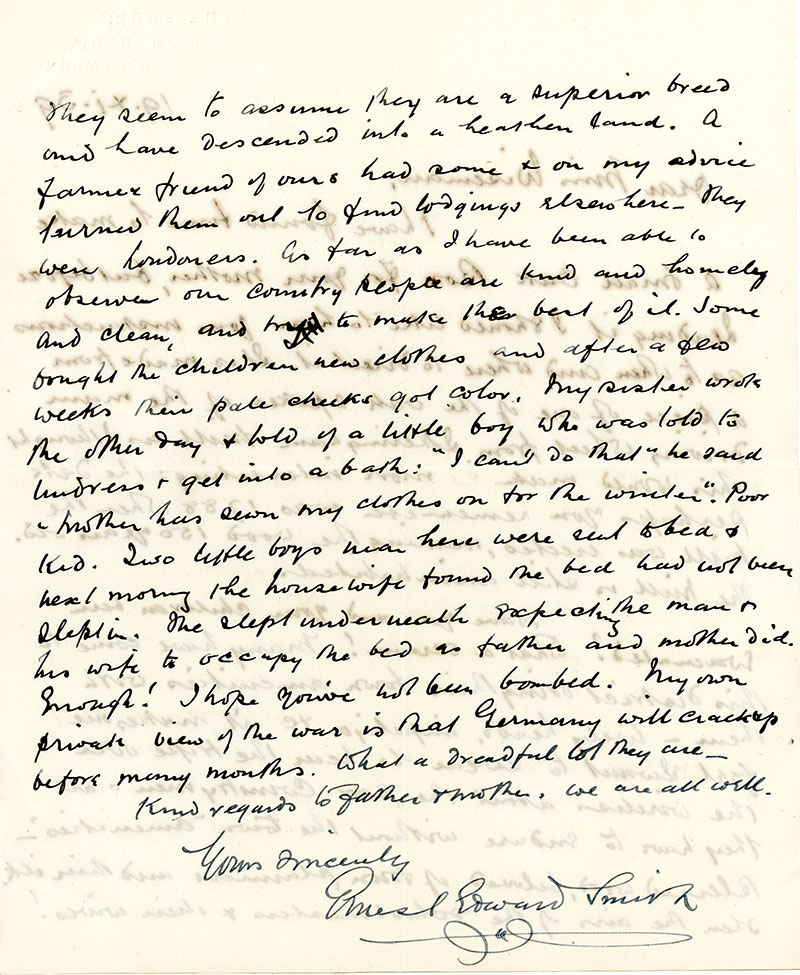 They seem to assume they are a superior breed
and have descended into a heathen land. A
farmer friend of ours had some & on my advice
turned them out to find lodgings elsewhere – They
were Londoners. As far as I have been able to
observe our country people are kind and homely
and clean, and try to make the best of it. Some
bought the children new clothes and after a few
weeks their pale cheeks got color. My sister wrote
the other day & told of a little boy who was told to
undress & get into a bath: "I can't do that" he said
"Mother has sewn my clothes on for the winter". Poor
kid. Two little boys near here were sent to bed &
next morng the housewife found the bed had not been
slept in. The slept underneath expecting the man &
his wife to occupy the bed as father and mother did.
Enough! I hope you've not been bombed. My own
private view of the war is that Germany will crack up
before many months. What a dreadful lot they are –
Kind regards to father & mother. We are all well.
Yours sincerely
Ernest Edward Smith